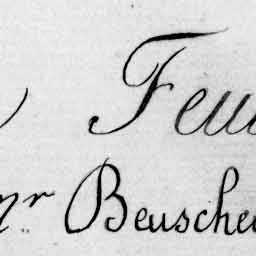 Feu
nr Beusche